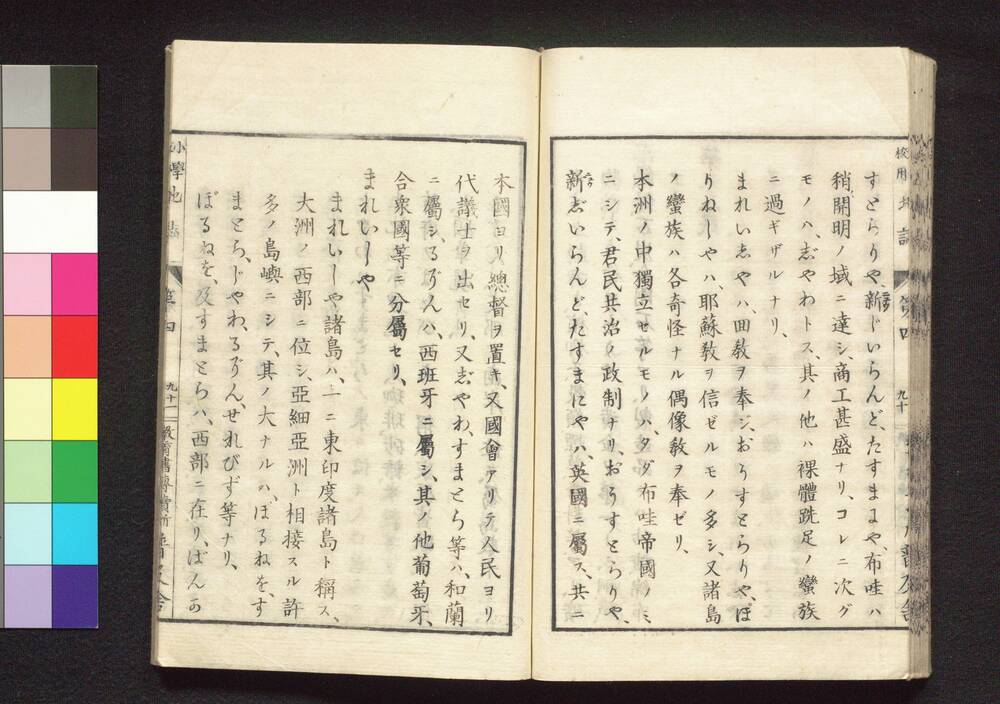 校用地誌 第四 九十 普及舎
すとらりや、新じいらんど、たすまにや、布哇ハ
稍開明ノ域ニ達シ、商工甚盛ナリ、コレニ次グ
モノハ、志やわトス、其ノ他ハ裸體跣足ノ蠻族
ニ過ギザルナリ、
まれいしやハ、回教ヲ奉ジ、おうすとらりや、ぽ
りねしーやハ、耶蘇教ヲ信ゼルモノ多シ、又諸島
ノ蠻族ハ各奇怪ナル偶像教ヲ奉ゼリ、
本洲ノ中獨立セルモノハ、タダ布哇帝國ノミ
ニシテ、君民共治ノ政制ナリ、おうすとらりや、
新志いらんど、たすまにやハ、英國ニ屬ス、共ニ
本國ヨリ總督ヲ置キ、又國會アリテ人民ヨリ
代議士ヲ出セリ、又志やわ、すまとら等ハ、和蘭
ニ屬シ、るそんハ、西班牙ニ屬シ、其ノ他葡萄牙、
合衆國等ニ分屬セリ、
まれいしや
まれいしや諸島ハ、一ニ東印度諸島ト稱ス、
大洲ノ西部ニ位シ、亞細亞洲ト相接スル許
多ノ島嶼ニシテ、其ノ大ナルハ、ぼるねを、す
まとら、じやわ、るそん、せれびず等ナリ、
ぼるねを、及すまとらハ、西部ニ在リ、ばんか
小學地誌 第四 九十一 教育書專賣所 普及舍